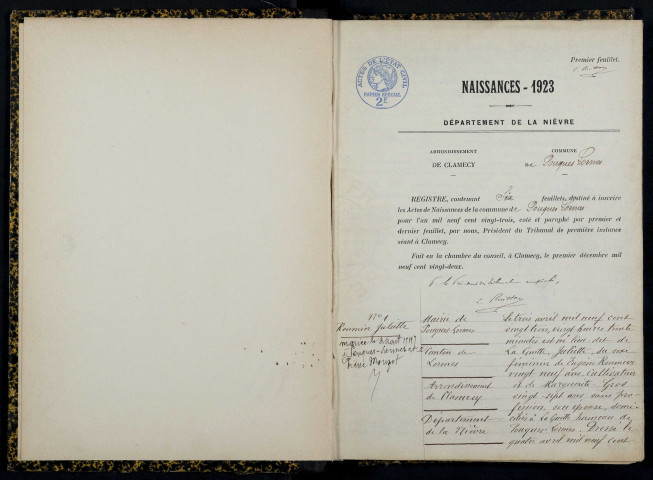 Premier feuillet.
ACTES DE L'ÉTAT CIVIL
PAPIER SPÉCIAL
2E
NAISSANCES - 1923
DÉPARTEMENT DE LA NIÈVRE
ARRONDISSEMENT
DE CLAMECY
COMMUNE
de Pouques Lormes
REGISTRE, contenant Six feuillets, destiné à inscrire
les Actes de Naissances de la commune de Pouques Lormes
pour l'an mil neuf cent vingt-trois, coté et paraphé par premier et
dernier feuillet, par nous, Président du Tribunal de première instance
séant à Clamecy.
Fait en la chambre du conseil, à Clamecy, le premier décembre mil
neuf cent vingt-deux.
N° 1
Juliette
Mairie de
Pouques Lormes
Canton de
Lormes
Arrondissement
de Clamecy
Département
de la Nièvre
Le trois avril mil neuf cent
vingt trois, vingt heures trente
minutes est née lieu dit de
La Goutte Juliette du sexe
féminin de Eugène
vingt neuf ans, cultivateur
et de Marguerite Gros
vingt-sept ans sans pro-
fession, son épouse, domi-
ciliés à La Goutte hameau de
Pouques Lormes. Dressé le
quatre avril mil neuf cent